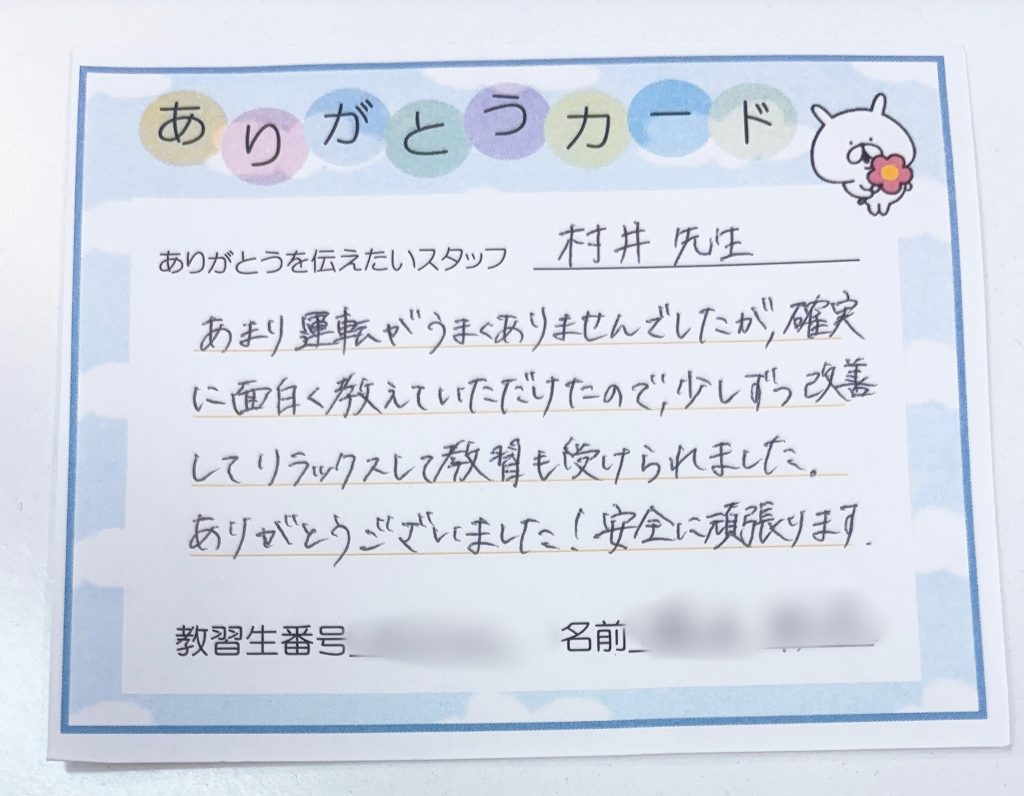 ありがとうカード
ありがとうを伝えたいスタッフ 村井 先生
あまり運転がうまくありませんでしたが,確実
に面白く教えていただけたので,少しずつ改善
してリラックスして教習も受けられました。
ありがとうございました!安全に頑張ります.
教習生番号 名前